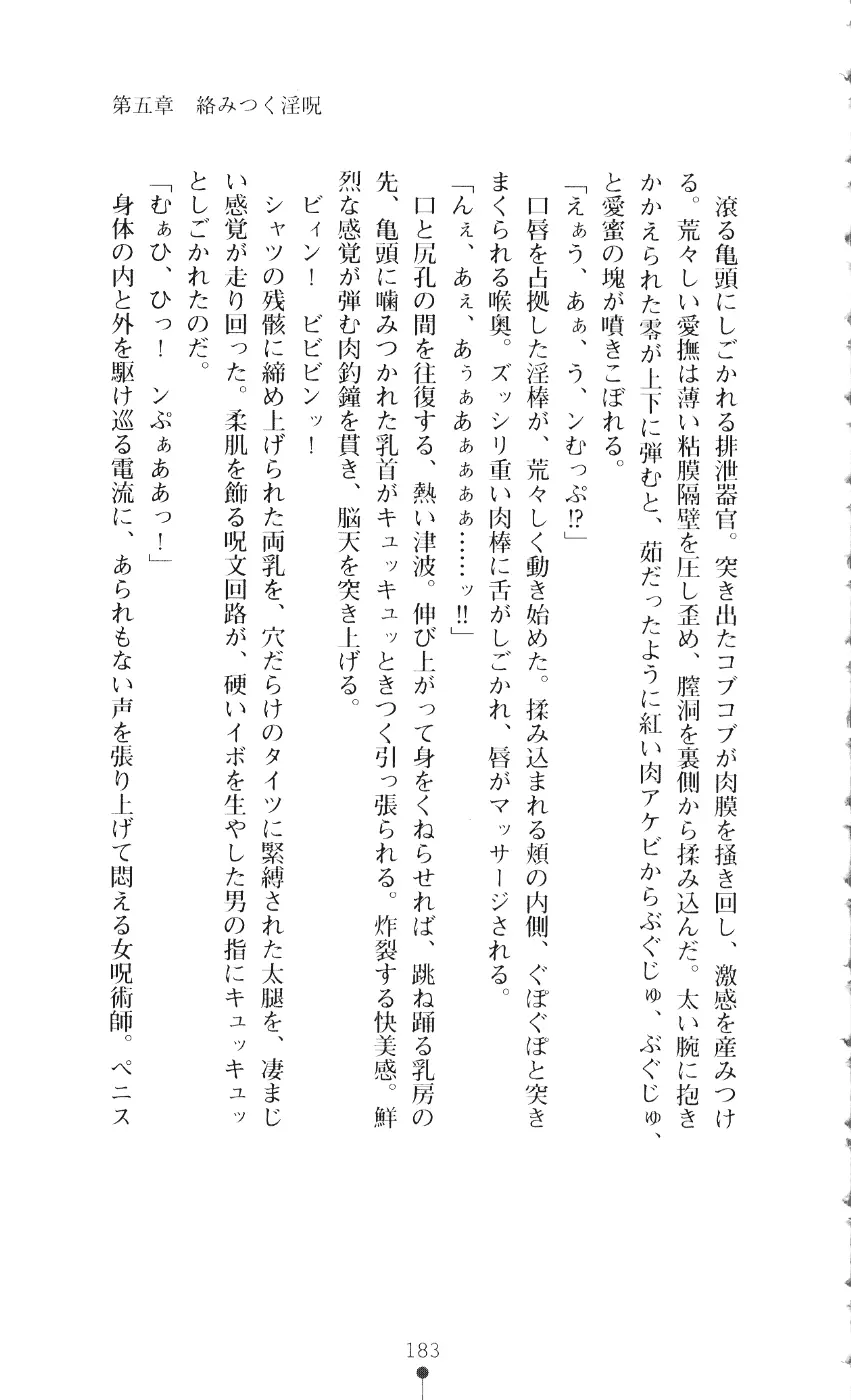 第五章　絡みつく淫呪
　滾る亀頭にしごかれる排泄器官。突き出たコブコブが肉膜を掻き回し、激感を産みつけ
る。荒々しい愛撫は薄い粘膜隔壁を圧し歪め、膣洞を裏側から揉み込んだ。太い腕に抱き
かかえられた零が上下に弾むと、茹だったように紅い肉アケビからぶぐじゅ、ぶぐじゅ、
と愛蜜の塊が噴きこぼれる。
「えぁう、あぁ、う、ンむっぷ!?」
　口唇を占拠した淫棒が、荒々しく動き始めた。揉み込まれる頬の内側、ぐぽぐぽと突き
まくられる喉奥。ズッシリ重い肉棒に舌がしごかれ、唇がマッサージされる。
「んぇ、あぇ、あぅぁあぁぁぁぁ……ッ!!」
　口と尻孔の間を往復する、熱い津波。伸び上がって身をくねらせれば、跳ね踊る乳房の
先、亀頭に噛みつかれた乳首がキュッキュッときつく引っ張られる。炸裂する快美感。鮮
烈な感覚が弾む肉釣鐘を貫き、脳天を突き上げる。
　ビィン！　ビビビンッ！
　シャツの残骸に締め上げられた両乳を、穴だらけのタイツに緊縛された太腿を、凄まじ
い感覚が走り回った。柔肌を飾る呪文回路が、硬いイボを生やした男の指にキュッキュッ
としごかれたのだ。
「むぁひ、ひっ！　ンぷぁああっ！」
　身体の内と外を駆け巡る電流に、あられもない声を張り上げて悶える女呪術師。ペニス
183